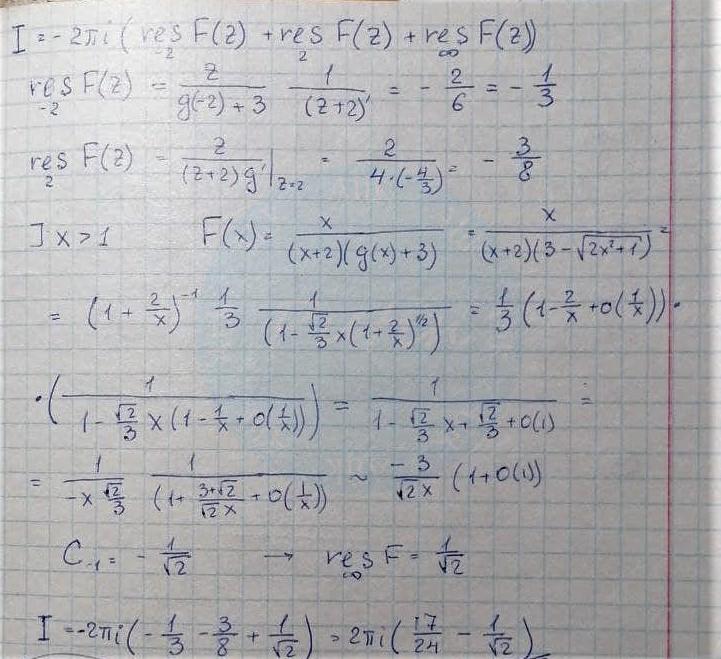 I = -2πi ( res₋₂ F(z) + res₂ F(z) + res_∞ F(z))
res₋₂ F(z) = z/(g(-2) + 3) 1/(z+2)' = - 2/6 = - 1/3
res₂ F(z) = z/((z+2) g')|_{z=2} = 2/(4·(-4/3)) = - 3/8
] x > 1 F(x) = x/((x+2)(g(x)+3)) = x/((x+2)(3 - √(2x²+1))) =
= (1 + 2/x)⁻¹ 1/3 1/(1 - √2/3 x (1 + 2/x)^{1/2}) = 1/3 (1 - 2/x + o(1/x)) ·
· (1/(1 - √2/3 x (1 - 1/x + o(1/x)))) = 1/(1 - √2/3 x + √2/3 + o(1)) =
= 1/(-x √2/3) 1/(1 + (3+√2)/(√2 x) + o(1/x)) ~ -3/(√2 x) (1 + o(1))
C₋₁ = - 1/√2 → res_∞ F = 1/√2
I = -2πi ( - 1/3 - 3/8 + 1/√2 ) = 2πi ( 17/24 - 1/√2 )